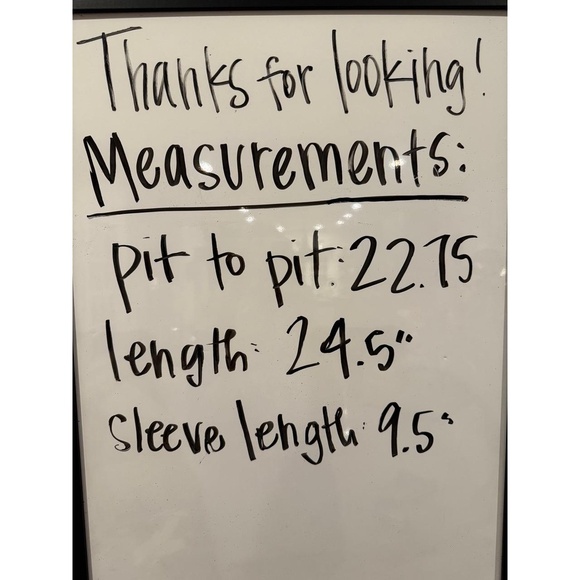 Thanks for looking!
Measurements:
pit to pit: 22.75
length: 24.5"
sleeve length: 9.5"